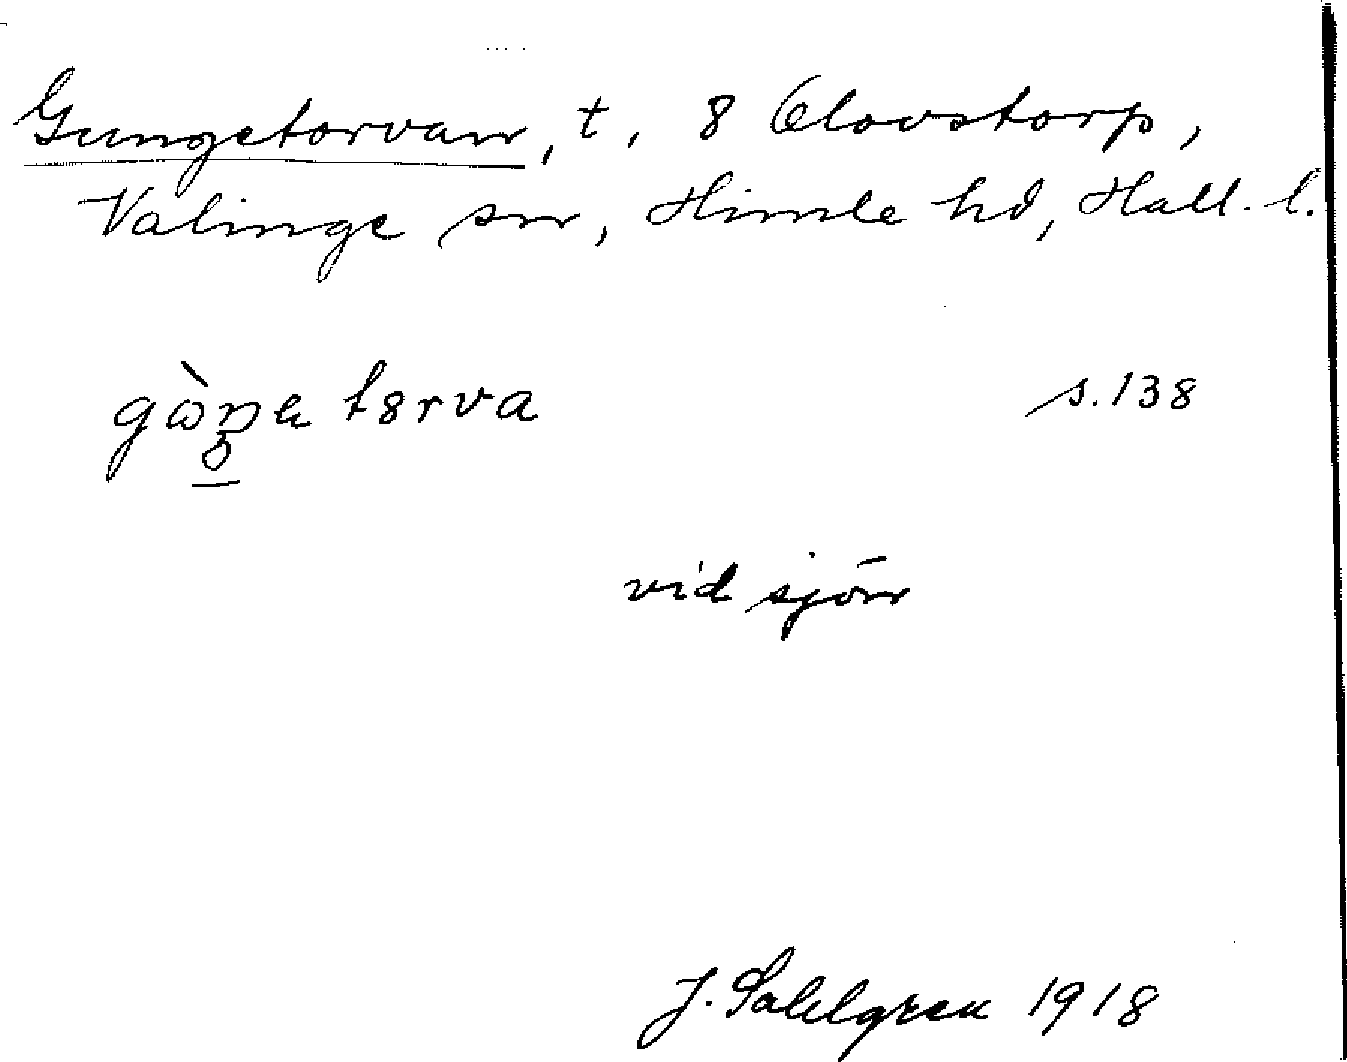 Gungetorvan, t, 8 Olovstorp,
Valinge sn, Himle hd, Hall. l.
s. 138
vid sjön
J. Sahlgren 1918